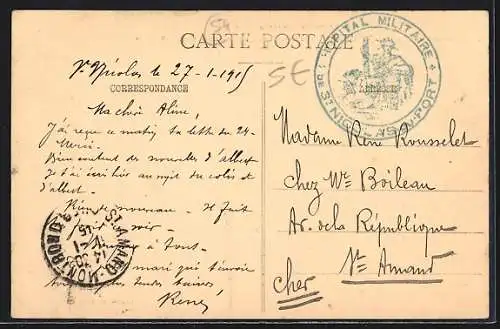 CARTE POSTALE
CORRESPONDANCE
HOPITAL MILITAIRE
DE St NICOLAS DU PORT
St Nicolas le 27-1-1915
Ma chère Aline,
J'ai reçu ce matin ta lettre du 24-
Merci.
Bien content des nouvelles d'albert
Je t'ai écrit hier au sujet du colis et
d'albert.
Rien de nouveau. Il fait
noir
à tous.
mari qui t'envoie
plus tendres baisers,
René
Madame René Rousselet
Chez Mr Boileau
Av. de la République
St Amand
Cher
ST AMAND-MONTROND
54
5E